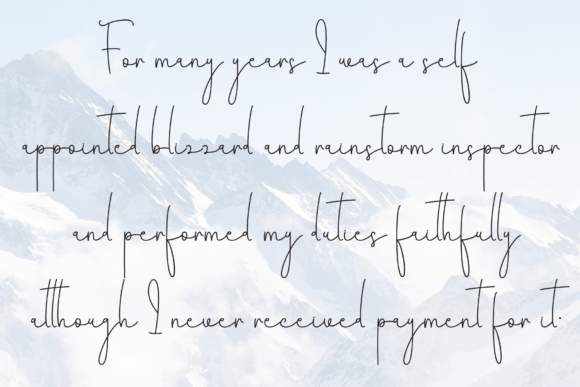 For many years I was a self
appointed blizzard and rainstorm inspector
and performed my duties faithfully
although I never received payment for it.